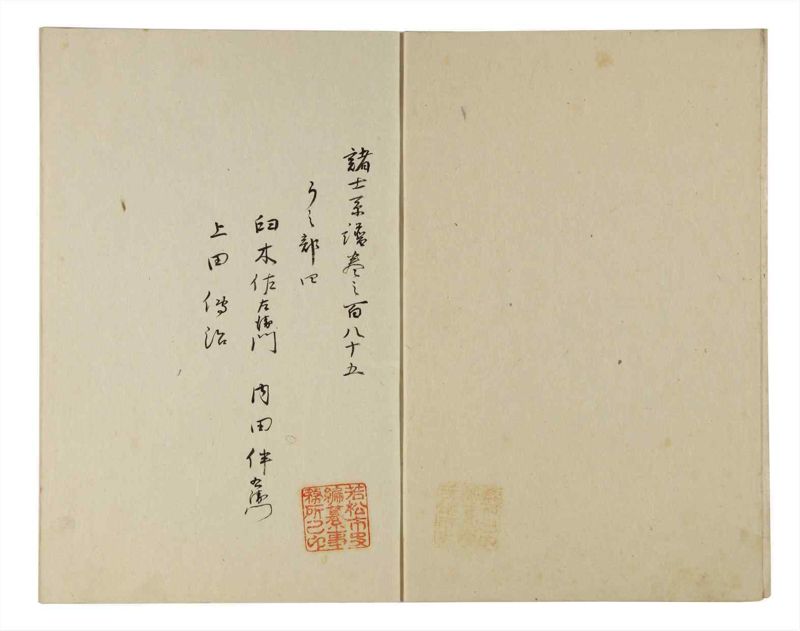 諸士系譜巻之百八十五
うノ部四
臼木佐左衛門　内田伴右衛門
上田伝治
若松市史
編纂事
務所之印